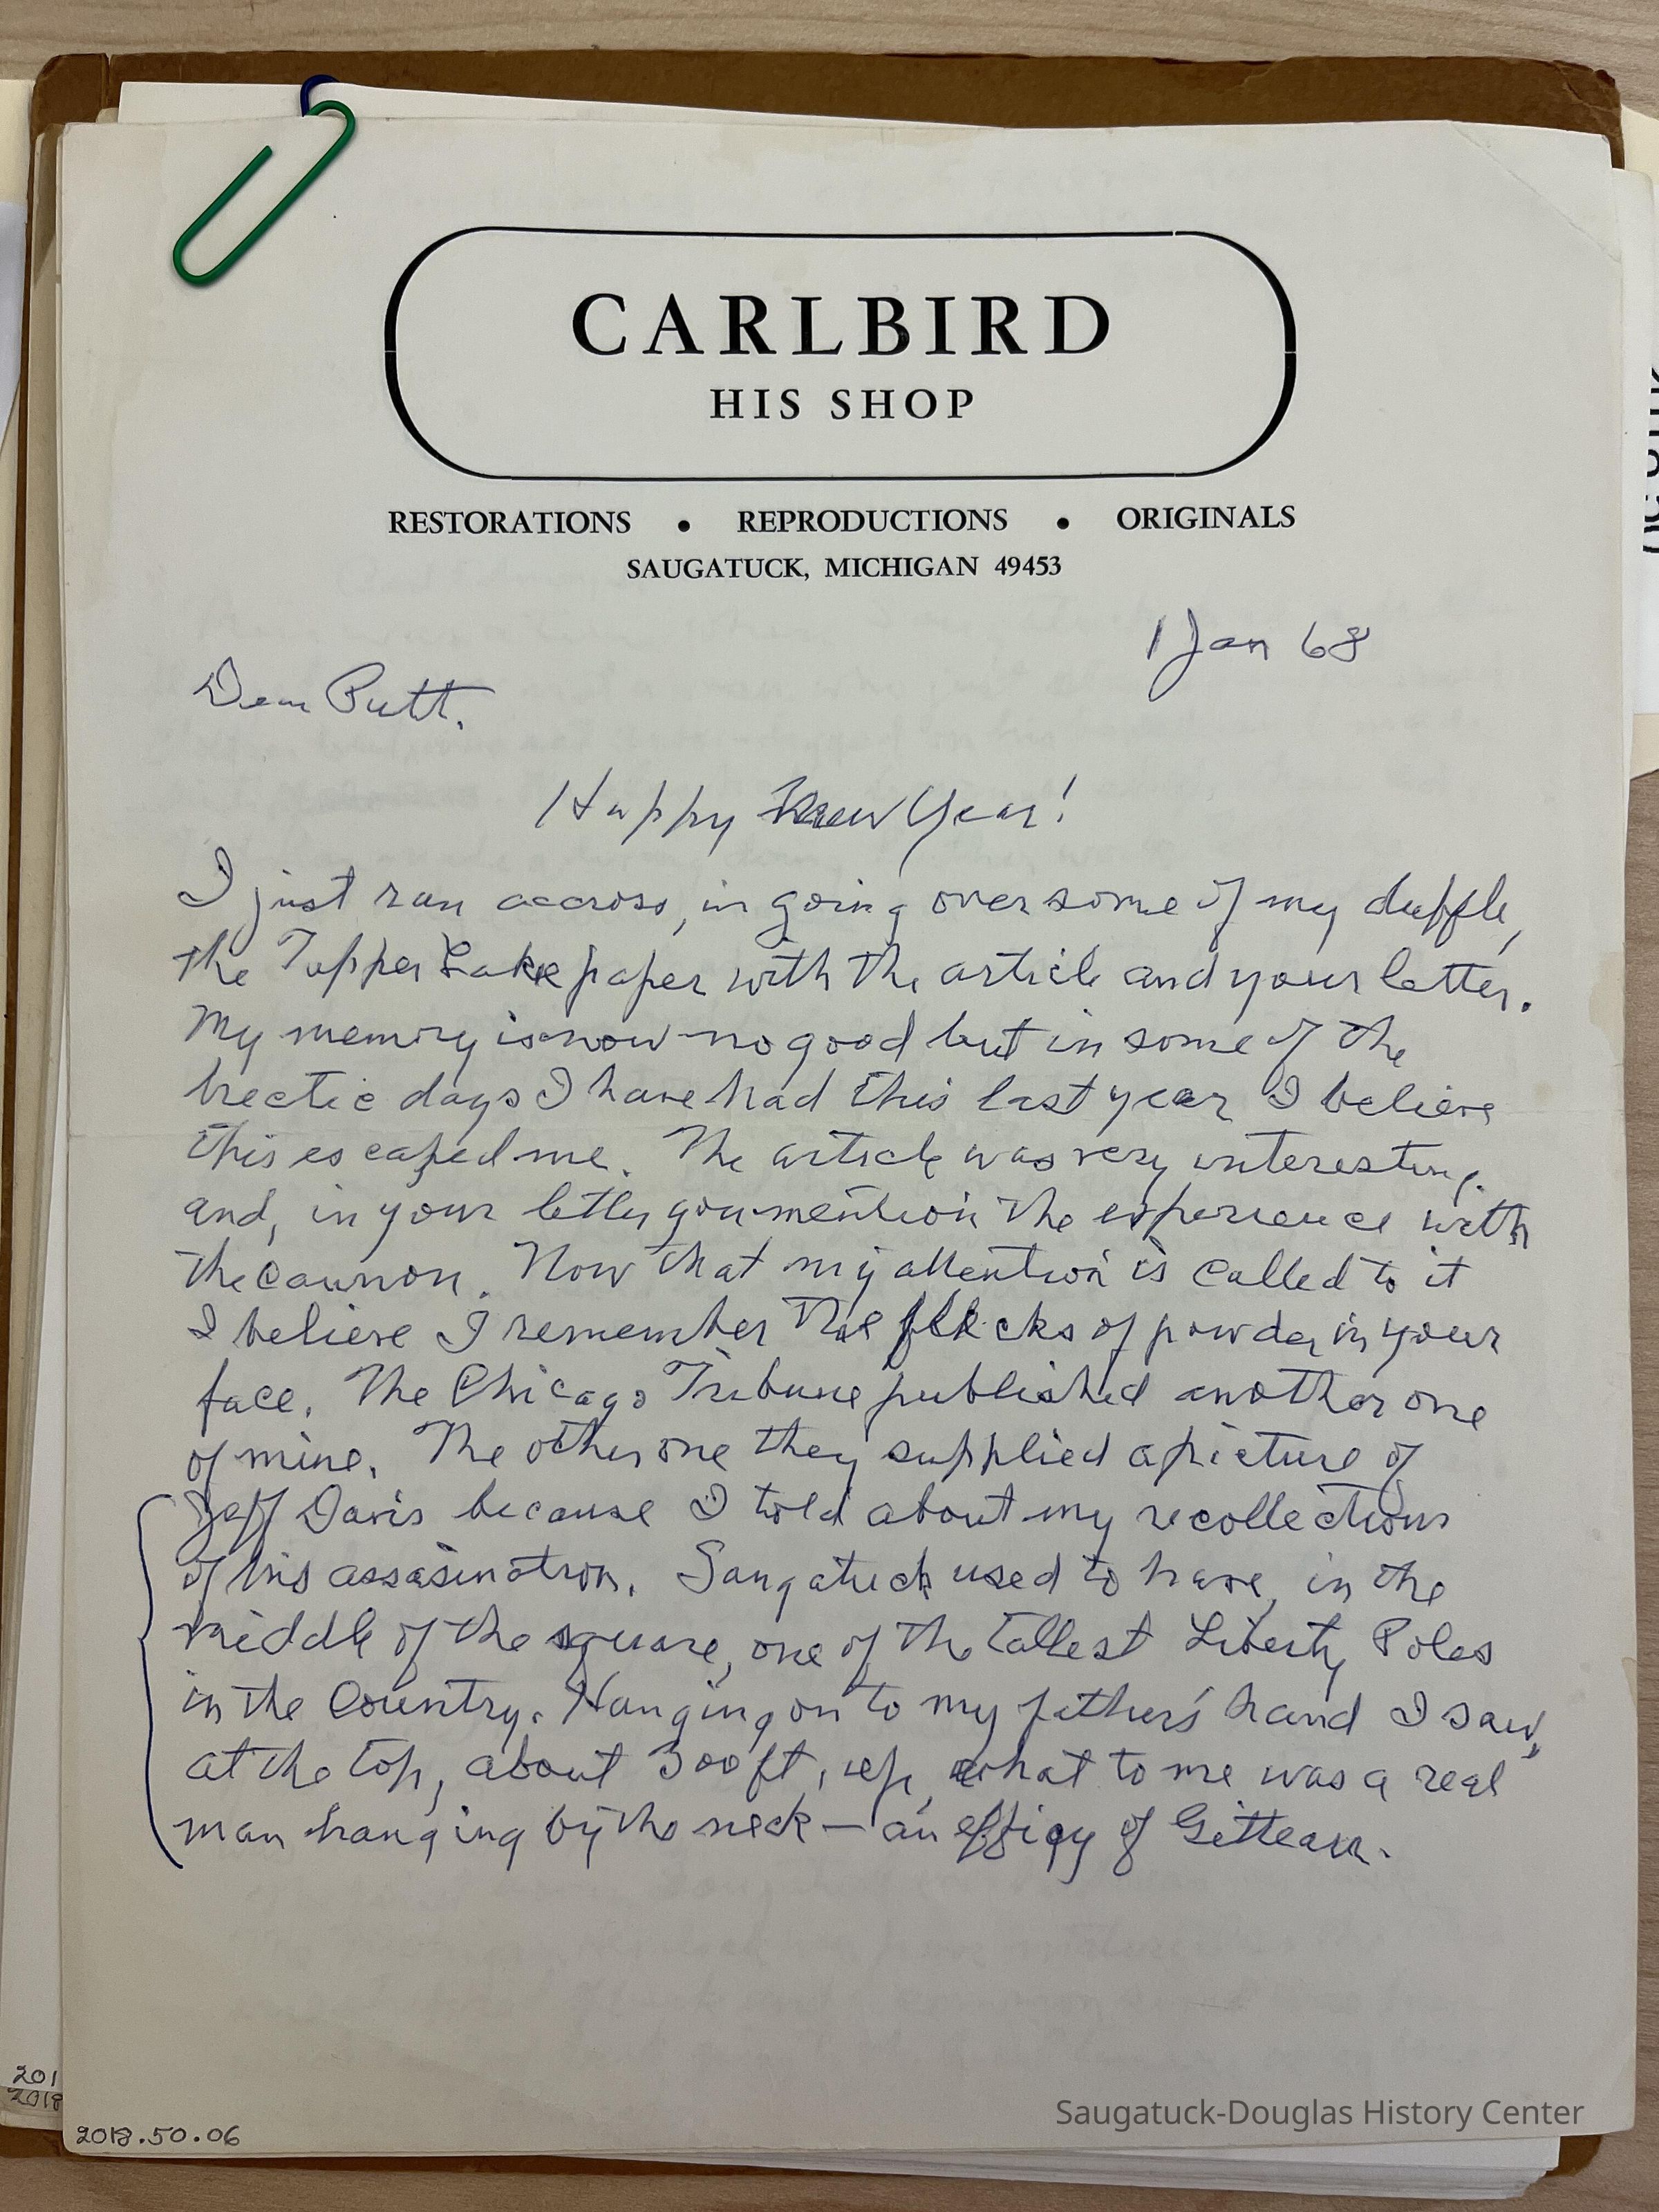 CARLBIRD
HIS SHOP
RESTORATIONS • REPRODUCTIONS • ORIGINALS
SAUGATUCK, MICHIGAN 49453
1 Jan 68
Dear Putt.
Happy New Year!
I just ran accross, in going over some of my duffle,
the Tupper Lake paper with the article and your letter.
My memory is now no good but in some of the
hectic days I have had this last year I believe
this escaped me. The article was very interesting.
and, in your letter you mention the experience with
the cannon. Now that my attention is called to it
I believe I remember the flecks of powder in your
face. The Chicago Tribune published another one
of mine. The other one they supplied a picture of
Jeff Davis because I told about my recollections
of his assasination. Saugatuck used to have, in the
middle of the square, one of the tallest Liberty Poles
in the Country. Hanging on to my father's hand I saw,
at the top, about 300 ft, up, what to me was a real
man hanging by the neck — an effigy of Gitteau.
201
2018
2018.50.06
Saugatuck-Douglas History Center